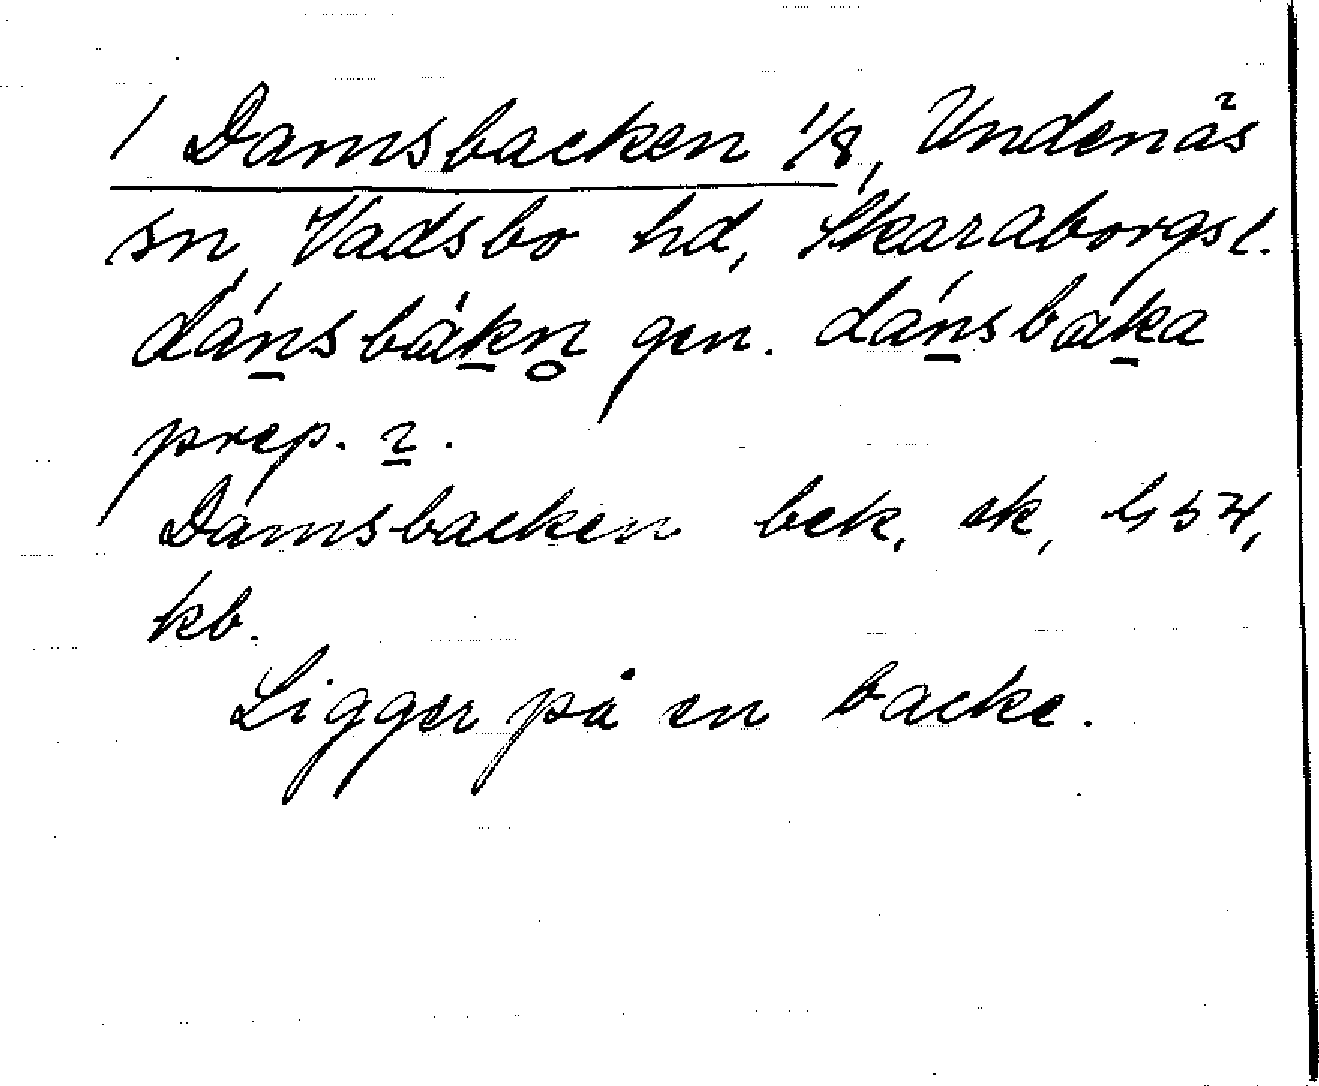 1 Damsbacken 1/8, Undenäs
sn, Vadsbo hd, Skaraborgs l.
dánsbákn̥ gen. dánsbaka
prep. 
Damsbacken bek, ek,
kb.
Ligger på en backe.